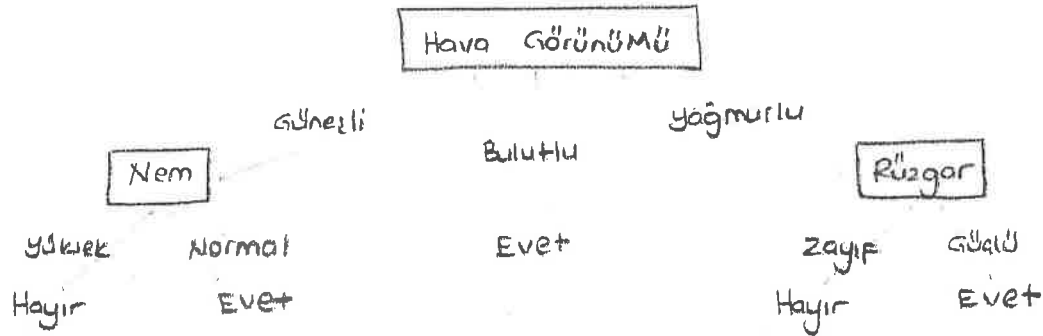 Hava Görünümü
Güneşli Bulutlu Yağmurlu
Nem Rüzgar
Yüksek Normal Evet Zayıf Güçlü
Hayır Evet Hayır Evet